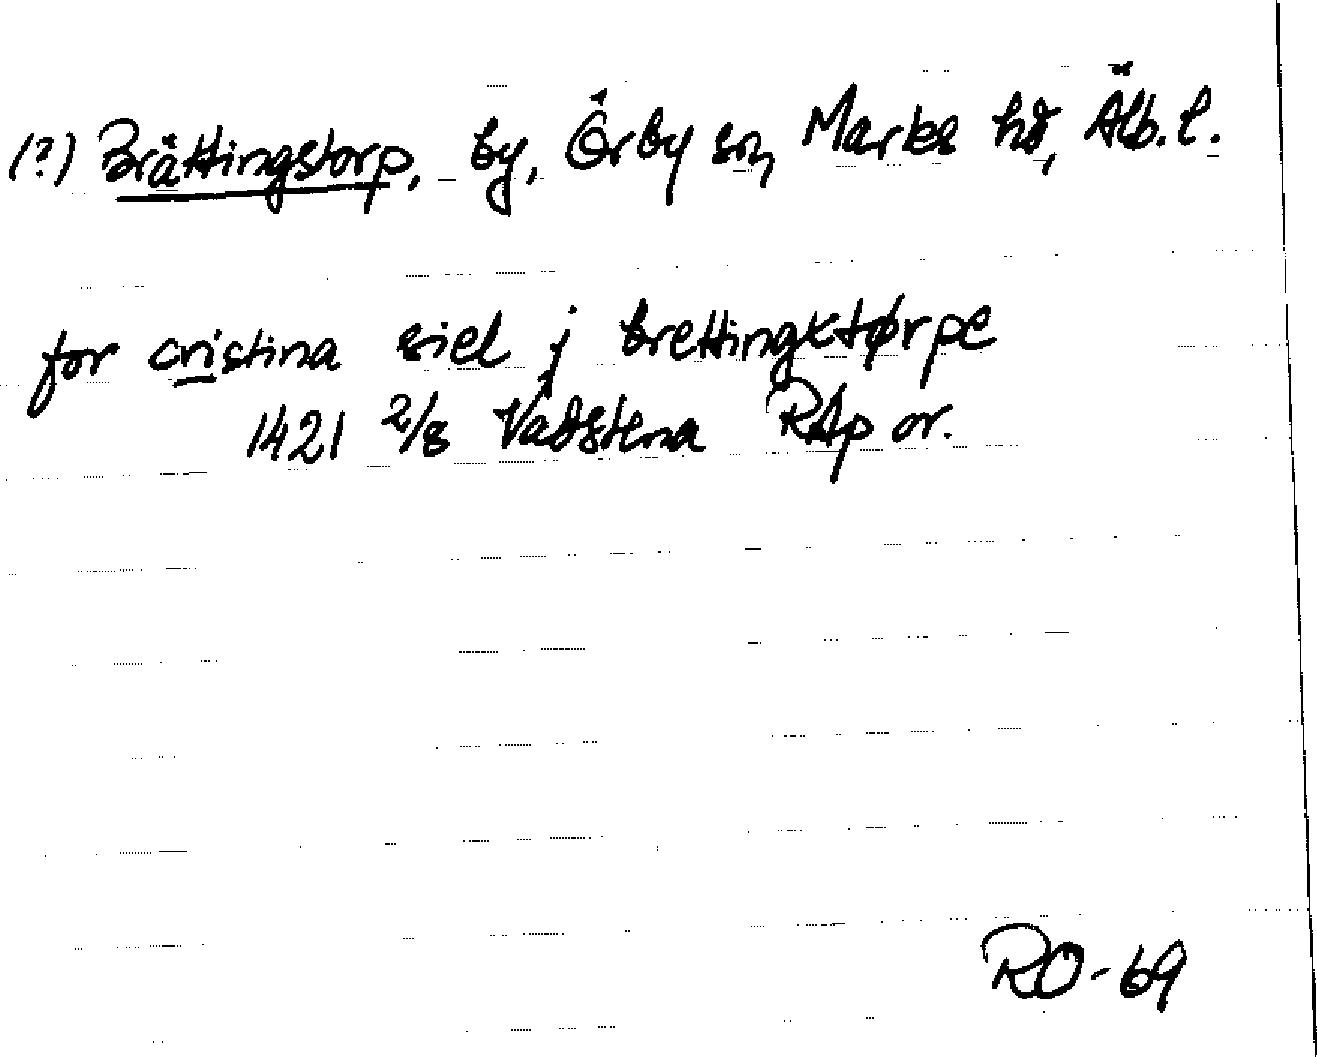 (?) Brättingstorp, by, Örby sn, Marks hd, Älb. l.
for cristina siel j brettingktørpe
1421 2/8 Vadstena RAp or.
RO-69